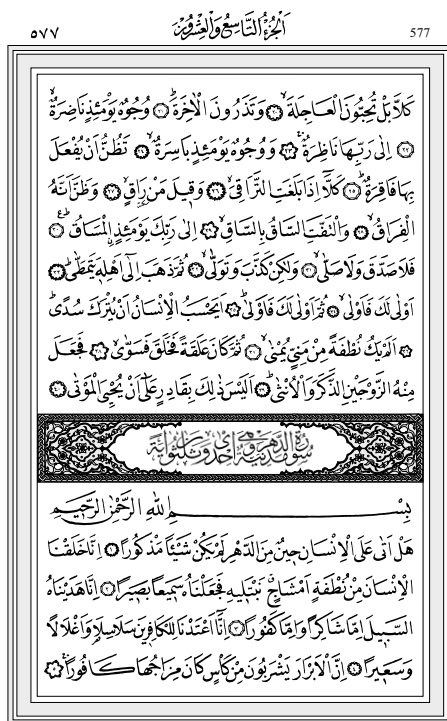 ٥٧٧ اَلْجُزْءُ التَّاسِعُ وَالْعِشْرُونَ 577
كَلَّا بَلْ تُحِبُّونَ الْعَاجِلَةَۙ ﴿٢٠﴾ وَتَذَرُونَ الْاٰخِرَةَۜ ﴿٢١﴾ وُجُوهٌ يَوْمَئِذٍ نَاضِرَةٌۙ
﴿٢٢﴾ اِلٰى رَبِّهَا نَاظِرَةٌۚ ﴿٢٣﴾ وَوُجُوهٌ يَوْمَئِذٍ بَاسِرَةٌۙ ﴿٢٤﴾ تَظُنُّ اَنْ يُفْعَلَ
بِهَا فَاقِرَةٌۜ ﴿٢٥﴾ كَلَّٓا اِذَا بَلَغَتِ التَّرَاقِيَۙ ﴿٢٦﴾ وَق۪يلَ مَنْ رَاقٍۙ ﴿٢٧﴾ وَظَنَّ اَنَّهُ
الْفِرَاقُۙ ﴿٢٨﴾ وَالْتَفَّتِ السَّاقُ بِالسَّاقِۙ ﴿٢٩﴾ اِلٰى رَبِّكَ يَوْمَئِذٍ الْمَسَاقُۜ ﴿٣٠﴾
فَلَا صَدَّقَ وَلَا صَلّٰىۙ ﴿٣١﴾ وَلٰكِنْ كَذَّبَ وَتَوَلّٰىۙ ﴿٣٢﴾ ثُمَّ ذَهَبَ اِلٰٓى اَهْلِه۪ يَتَمَطّٰىۜ ﴿٣٣﴾
اَوْلٰى لَكَ فَاَوْلٰىۙ ﴿٣٤﴾ ثُمَّ اَوْلٰى لَكَ فَاَوْلٰىۜ ﴿٣٥﴾ اَيَحْسَبُ الْاِنْسَانُ اَنْ يُتْرَكَ سُدًىۜ
﴿٣٦﴾ اَلَمْ يَكُ نُطْفَةً مِنْ مَنِيٍّ يُمْنٰىۙ ﴿٣٧﴾ ثُمَّ كَانَ عَلَقَةً فَخَلَقَ فَسَوّٰىۙ ﴿٣٨﴾ فَجَعَلَ
مِنْهُ الزَّوْجَيْنِ الذَّكَرَ وَالْاُنْثٰىۜ ﴿٣٩﴾ اَلَيْسَ ذٰلِكَ بِقَادِرٍ عَلٰٓى اَنْ يُحْيِيَ الْمَوْتٰى ﴿٤٠﴾
سُورَةُ الدَّهْرِ مَدَنِيَّةٌ وَهِيَ اِحْدٰى وَثَلٰثُونَ اٰيَةً
بِسْمِ اللّٰهِ الرَّحْمٰنِ الرَّح۪يمِ
هَلْ اَتٰى عَلَى الْاِنْسَانِ ح۪ينٌ مِنَ الدَّهْرِ لَمْ يَكُنْ شَيْـًٔا مَذْكُورًا ﴿١﴾ اِنَّا خَلَقْنَا
الْاِنْسَانَ مِنْ نُطْفَةٍ اَمْشَاجٍۗ نَبْتَل۪يهِ فَجَعَلْنَاهُ سَم۪يعًا بَص۪يرًا ﴿٢﴾ اِنَّا هَدَيْنَاهُ
السَّب۪يلَ اِمَّا شَاكِرًا وَاِمَّا كَفُورًا ﴿٣﴾ اِنَّٓا اَعْتَدْنَا لِلْكَافِر۪ينَ سَلَاسِلَا۬ وَاَغْلَالًا
وَسَع۪يرًا ﴿٤﴾ اِنَّ الْاَبْرَارَ يَشْرَبُونَ مِنْ كَأْسٍ كَانَ مِزَاجُهَا كَافُورًاۚ ﴿٥﴾